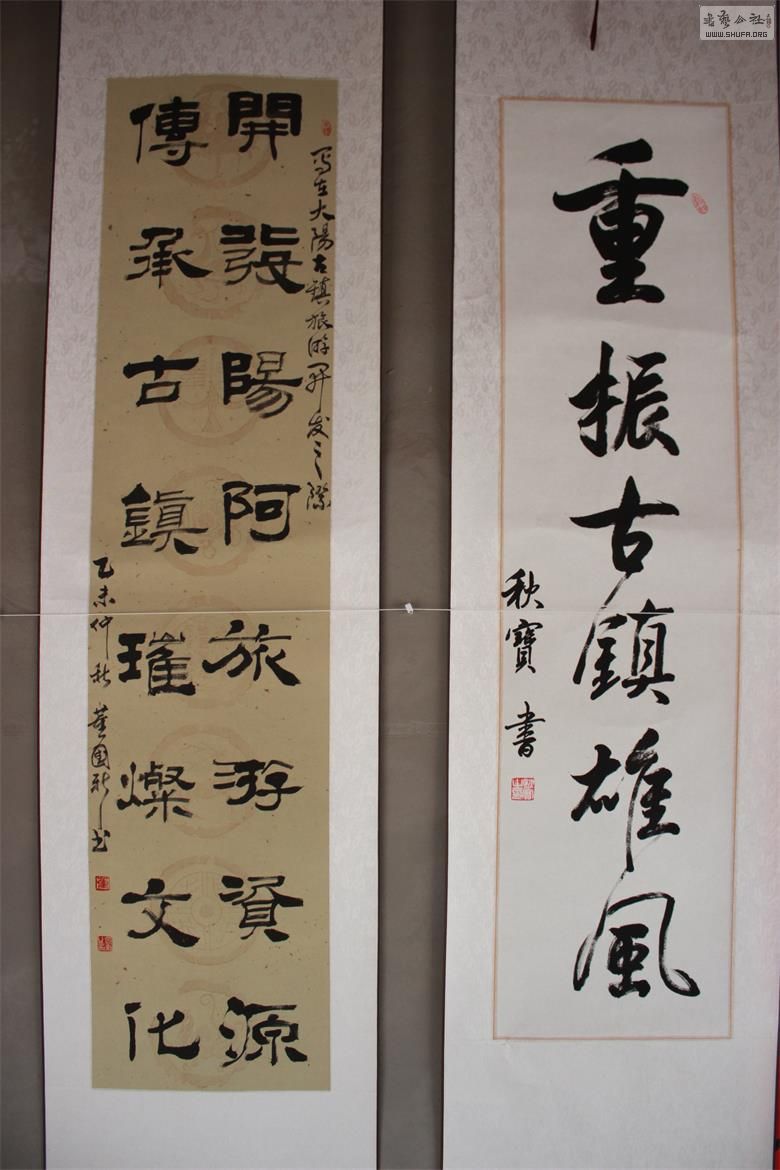 書藝公社
WWW.SHUFA.ORG
重振古鎮雄風
秋寶書
写在大陽古鎮旅游开发之際
開發陽阿旅游資源
傳承古鎮璀燦文化
乙未仲秋董國新书